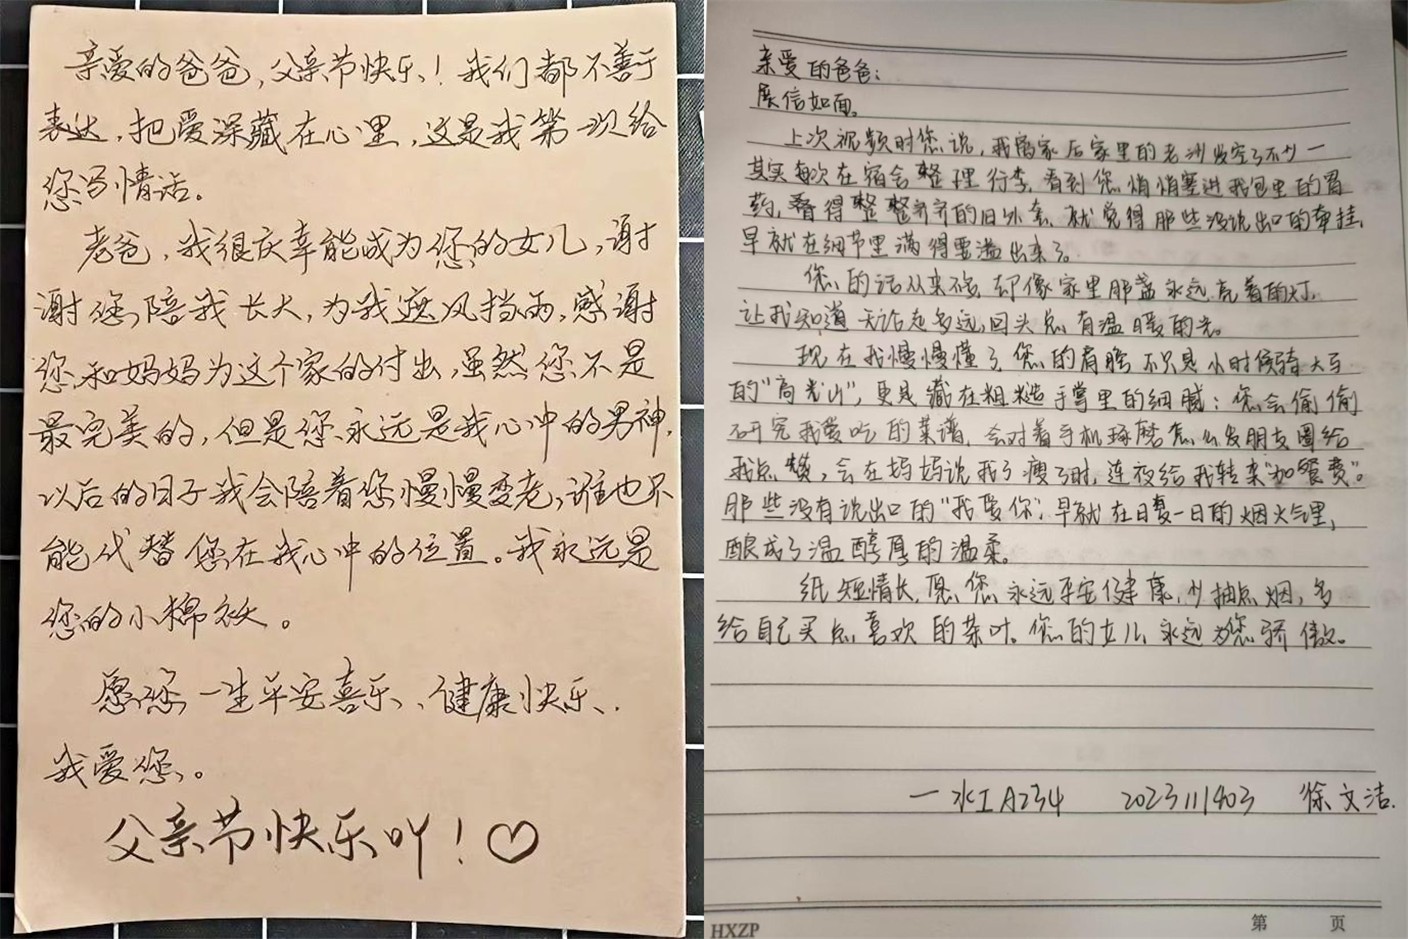 亲爱的爸爸，父亲节快乐！我们都不善于
表达，把爱深藏在心里，这是我第一次给
您写情话。
老爸，我很庆幸能成为您的女儿，谢
谢您陪我长大，为我遮风挡雨，感谢
您和妈妈为这个家的付出，虽然您不是
最完美的，但是您永远是我心中的男神，
以后的日子我会陪着您慢慢变老，谁也不
能代替您在我心中的位置。我永远是
您的小棉袄。
愿您一生平安喜乐、健康快乐，
我爱您。
父亲节快乐吖！♡
亲爱的爸爸：
展信如面。
上次视频时您说，我离家后家里的老沙发空了不少一
其实每次在宿舍整理行李，看到您悄悄塞进我包里的胃
药，叠得整整齐齐的旧外套，就觉得那些没说出口的牵挂，
早就在细节里满得要溢出来了。
您的话从来不多，却像家里那盏永远亮着的灯，
让我知道无论走多远，回头总有温暖的光。
现在我慢慢懂了，您的肩膀不只是小时候骑大马
的“高光山”，更是藏在粗糙手掌里的细腻：您会偷偷
研究我爱吃的菜谱，会对着手机琢磨怎么发朋友圈给
我点赞，会在妈妈说我了瘦了时，连夜给我转来“加餐费”。
那些没有说出口的“我爱你”，早就在日复一日的烟火气里，
酿成了温醇厚的温柔。
纸短情长，愿您永远平安健康，少抽点烟，多
给自己买点喜欢的茶叶。您的女儿永远为您骄傲。
一水工A234 2023111403 徐文洁.
HXZP 第 页